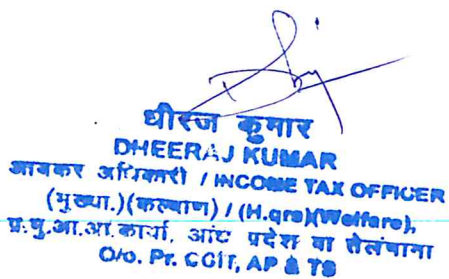 धीरज कुमार
DHEERAJ KUMAR
आयकर अधिकारी / INCOME TAX OFFICER
(मुख्या.)(कल्याण) / (H.qrs)(Welfare),
प्र.मु.आ.आ.कार्या, आंध्र प्रदेश वा तेलंगाना
O/o. Pr. CCIT, AP & TS